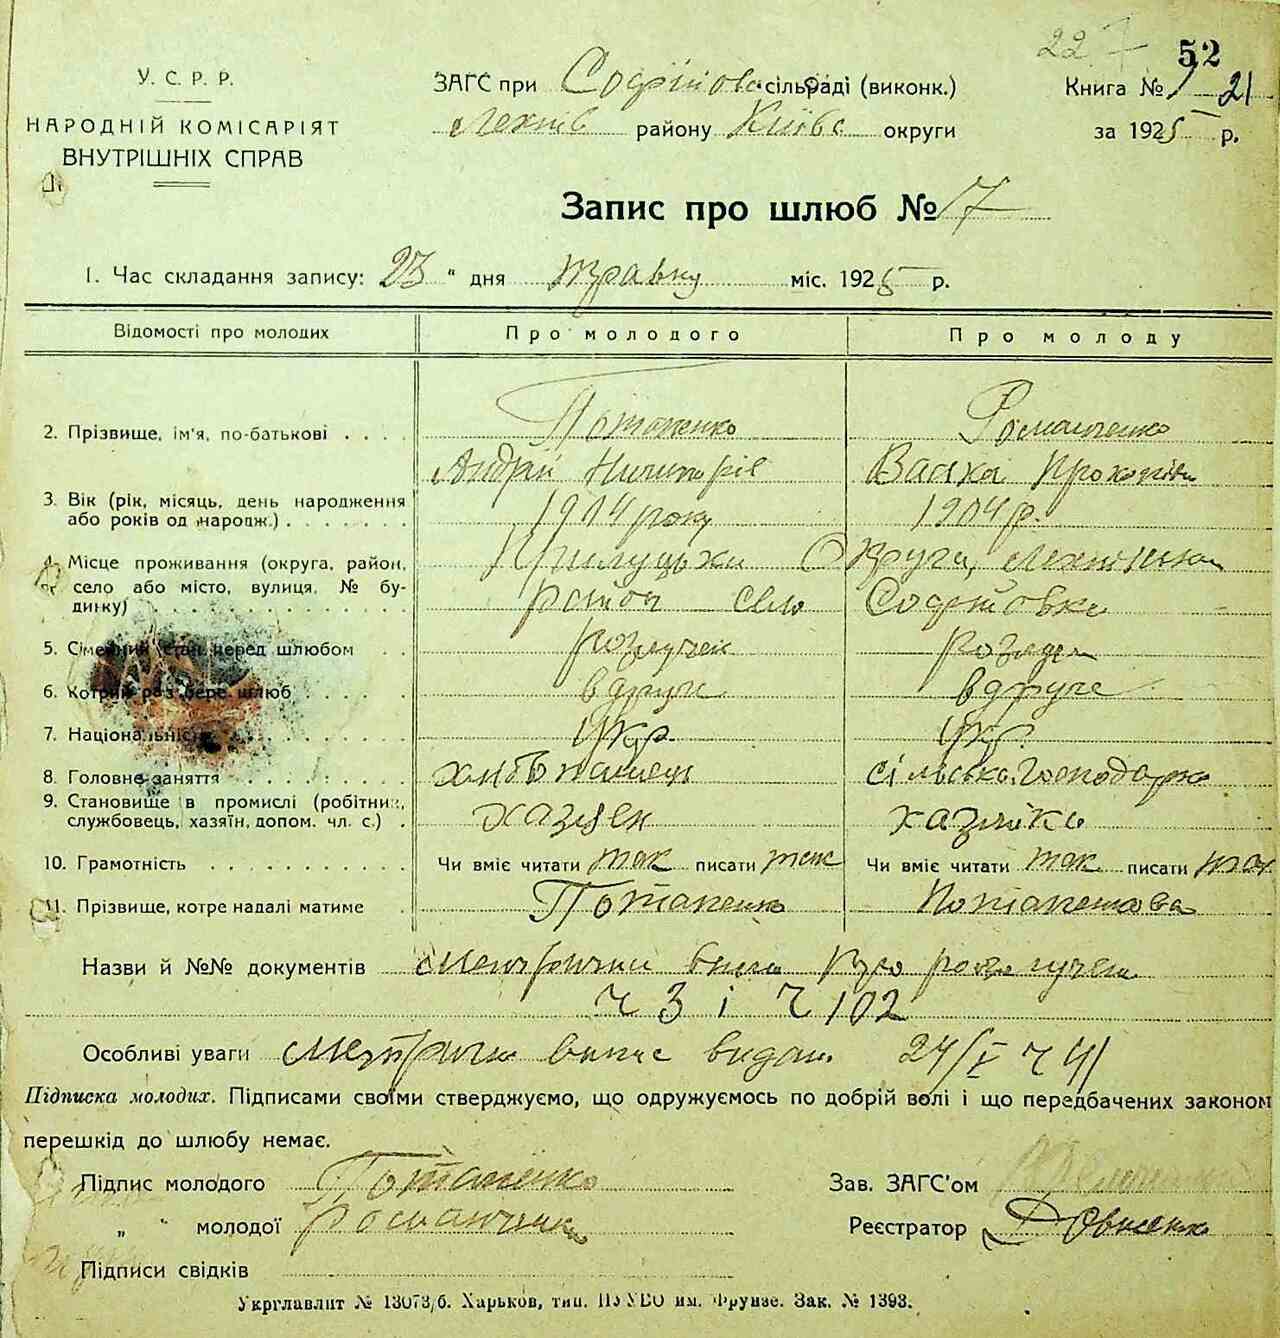 227 52
У. С. Р. Р. ЗАГС при Софіївс. сільраді (виконк.) Книга № 21
НАРОДНІЙ КОМІСАРІЯТ району Київс округи за 1925 р.
ВНУТРІШНІХ СПРАВ
Запис про шлюб № 17
1. Час складання запису: 23 " дня травну міс. 1925 р.
Відомості про молодих Про молодого Про молоду
2. Прізвище, ім'я, по-батькові . . . . Потапенко Романченко
Андрій Ничипорів Прокопівн
3. Вік (рік, місяць, день народження
або років од народж.) . . . . . . . 1904 року 1904 р.
4. Місце проживання (округа, район, Прилуцьки Округи,
село або місто, вулиця. № бу- район село Софіївка
динку) . . . . . . . . . . . . . .
5. Сімейний стан перед шлюбом . . розлучен
6. Котрий раз бере шлюб . . . . . вдруге вдруге
7. Національність . . . . . . . . Укр. Укр.
8. Головне заняття . . . . . . . . сільська господарка
9. Становище в промислі (робітник,
службовець, хазяїн, допом. чл. с.) . хазяен хазяйка
10. Грамотність . . . . . . . . . . Чи вміє читати так писати так Чи вміє читати так писати так
11. Прізвище, котре надалі матиме . Потапенко
Назви й №№ документів про розлучен
ч 3 і ч 102
Особливі уваги випис видан. 24/V ч 41
Підписка молодих. Підписами своїми стверджуємо, що одружуємось по добрій волі і що передбачених законом
перешкід до шлюбу немає.
Підпис молодого Потапенко Зав. ЗАГС'ом
„ " молодої Романченко Реєстратор
Підписи свідків
Укрглавлит № 13073/б. Харьков, тип. ПУУВО им. Фрунзе. Зак. № 1393.